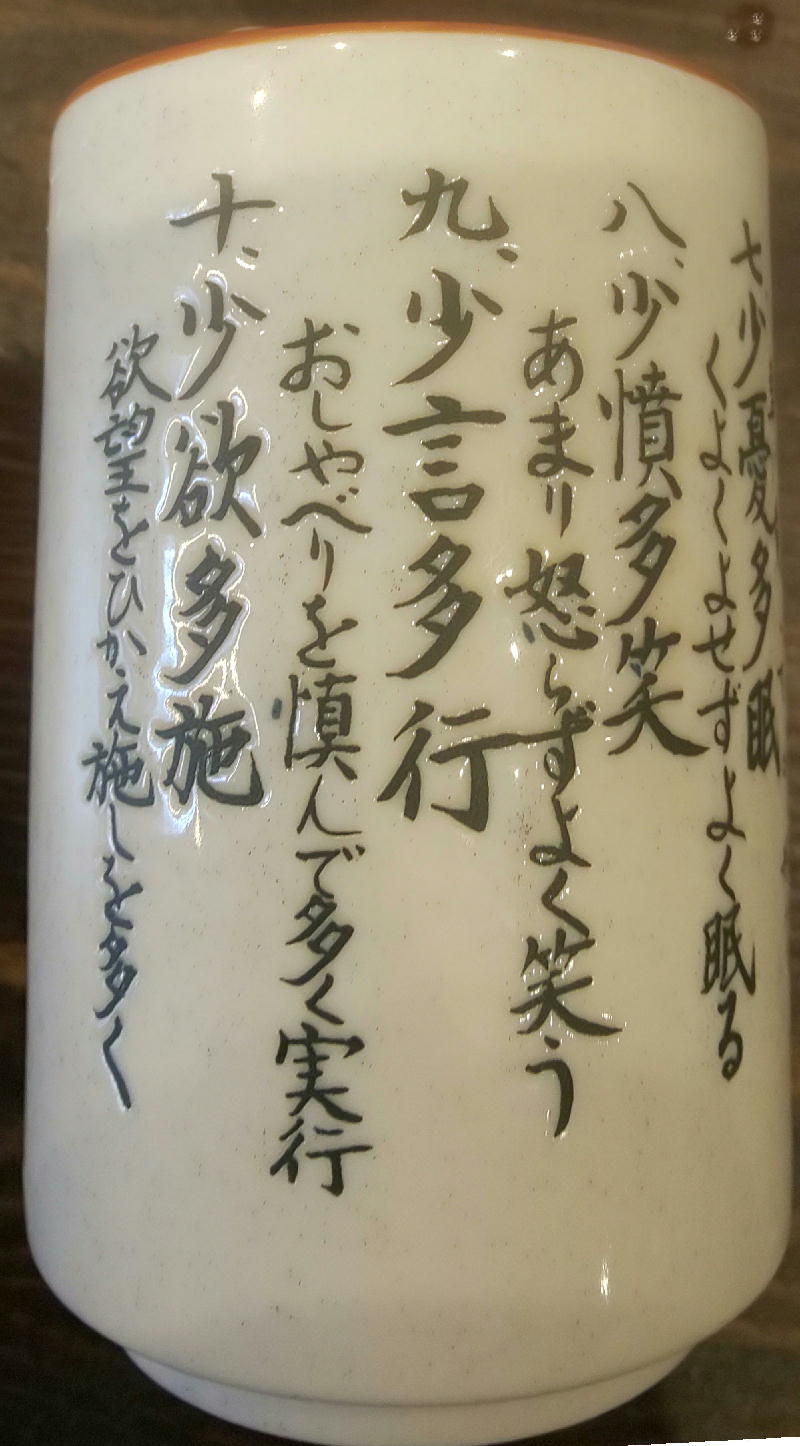 七、少憂多眠
くよくよせずよく眠る
八、少憤多笑
あまり怒らずよく笑う
九、少言多行
おしゃべりを慎んで多く実行
十、少欲多施
欲望をひかえ施しを多く